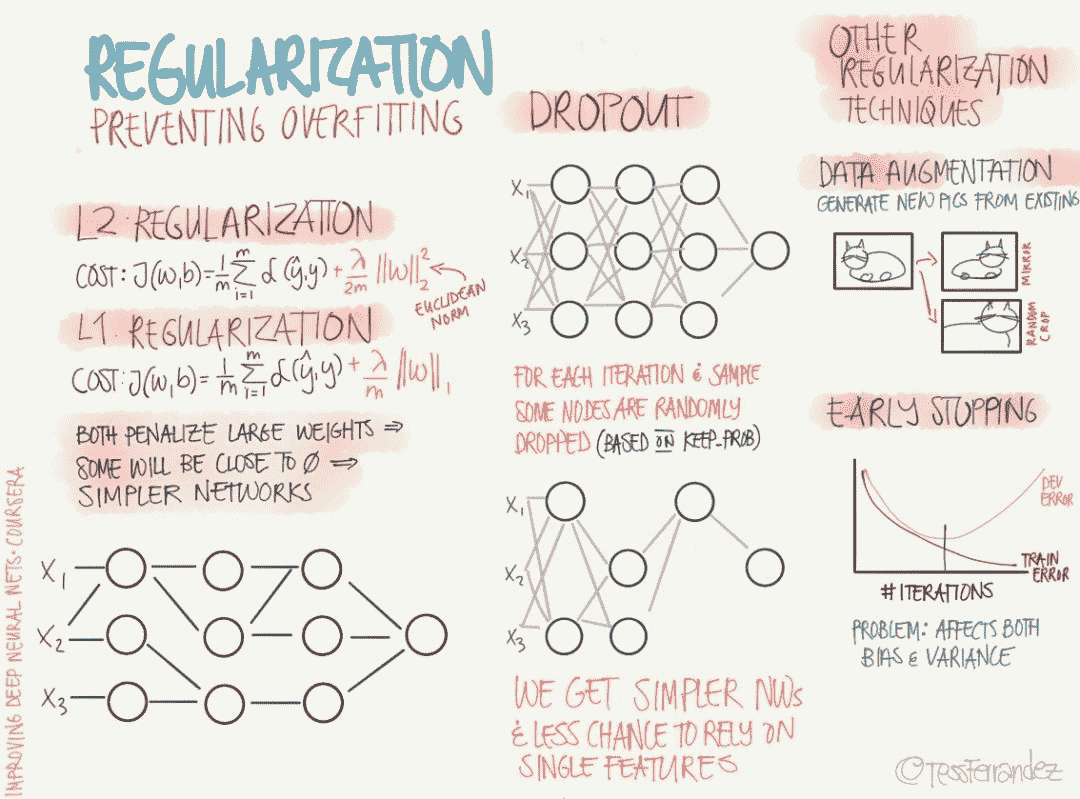 REGULARIZATION
PREVENTING OVERFITTING
L2. REGULARIZATION
COST: J(w,b) = 1/m ∑ᵢ₌₁ᵐ L(ŷ,y) + λ/2m ||w||₂²
EUCLIDEAN
NORM
L1. REGULARIZATION
COST: J(w,b) = 1/m ∑ᵢ₌₁ᵐ L(ŷ,y) + λ/m ||w||₁
BOTH PENALIZE LARGE WEIGHTS ⇒
SOME WILL BE CLOSE TO Ø ⇒
SIMPLER NETWORKS
X₁
X₂
X₃
IMPROVING DEEP NEURAL NETS · COURSERA
DROPOUT
X₁
X₂
X₃
FOR EACH ITERATION & SAMPLE
SOME NODES ARE RANDOMLY
DROPPED (BASED ON KEEP-PROB)
X₁
X₂
X₃
WE GET SIMPLER NWs
& LESS CHANCE TO RELY ON
SINGLE FEATURES
OTHER
REGULARIZATION
TECHNIQUES
DATA AUGMENTATION
GENERATE NEW PICS FROM EXISTING
MIRROR
RANDOM
CROP
EARLY STOPPING
DEV
ERROR
TRAIN
ERROR
# ITERATIONS
PROBLEM: AFFECTS BOTH
BIAS & VARIANCE
©TessFerrandez